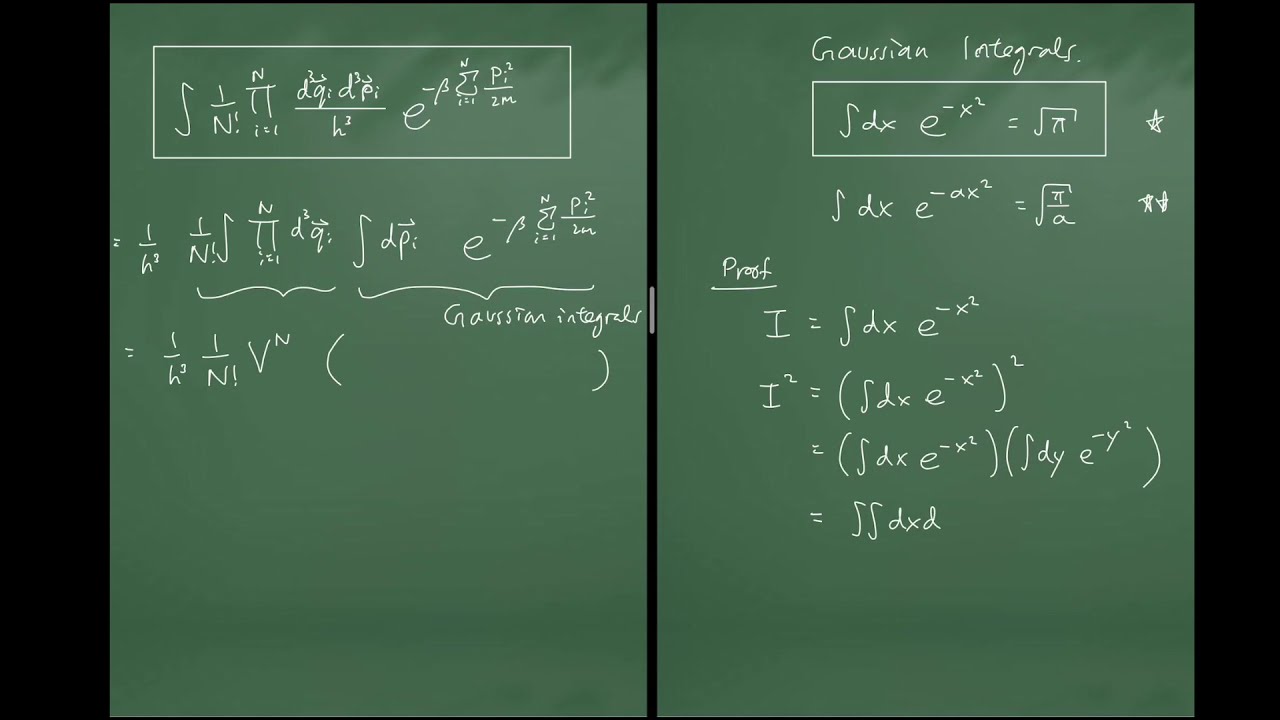 ∫ 1/N! ∏_{i=1}^{N} d³q⃗ᵢ d³p⃗ᵢ / h³ e^{-β ∑_{i=1}^{N} pᵢ²/2m}
= 1/h³ 1/N! ∫ ∏_{i=1}^{N} d³q⃗ᵢ ∫ dp⃗ᵢ e^{-β ∑_{i=1}^{N} pᵢ²/2m}
Gaussian integrals
= 1/h³ 1/N! V^N ( )
Gaussian Integrals.
∫dx e^{-x²} = √π ☆
∫dx e^{-ax²} = √(π/a) ☆☆
Proof
I = ∫dx e^{-x²}
I² = (∫dx e^{-x²})²
= (∫dx e^{-x²})(∫dy e^{-y²})
= ∫∫ dxd